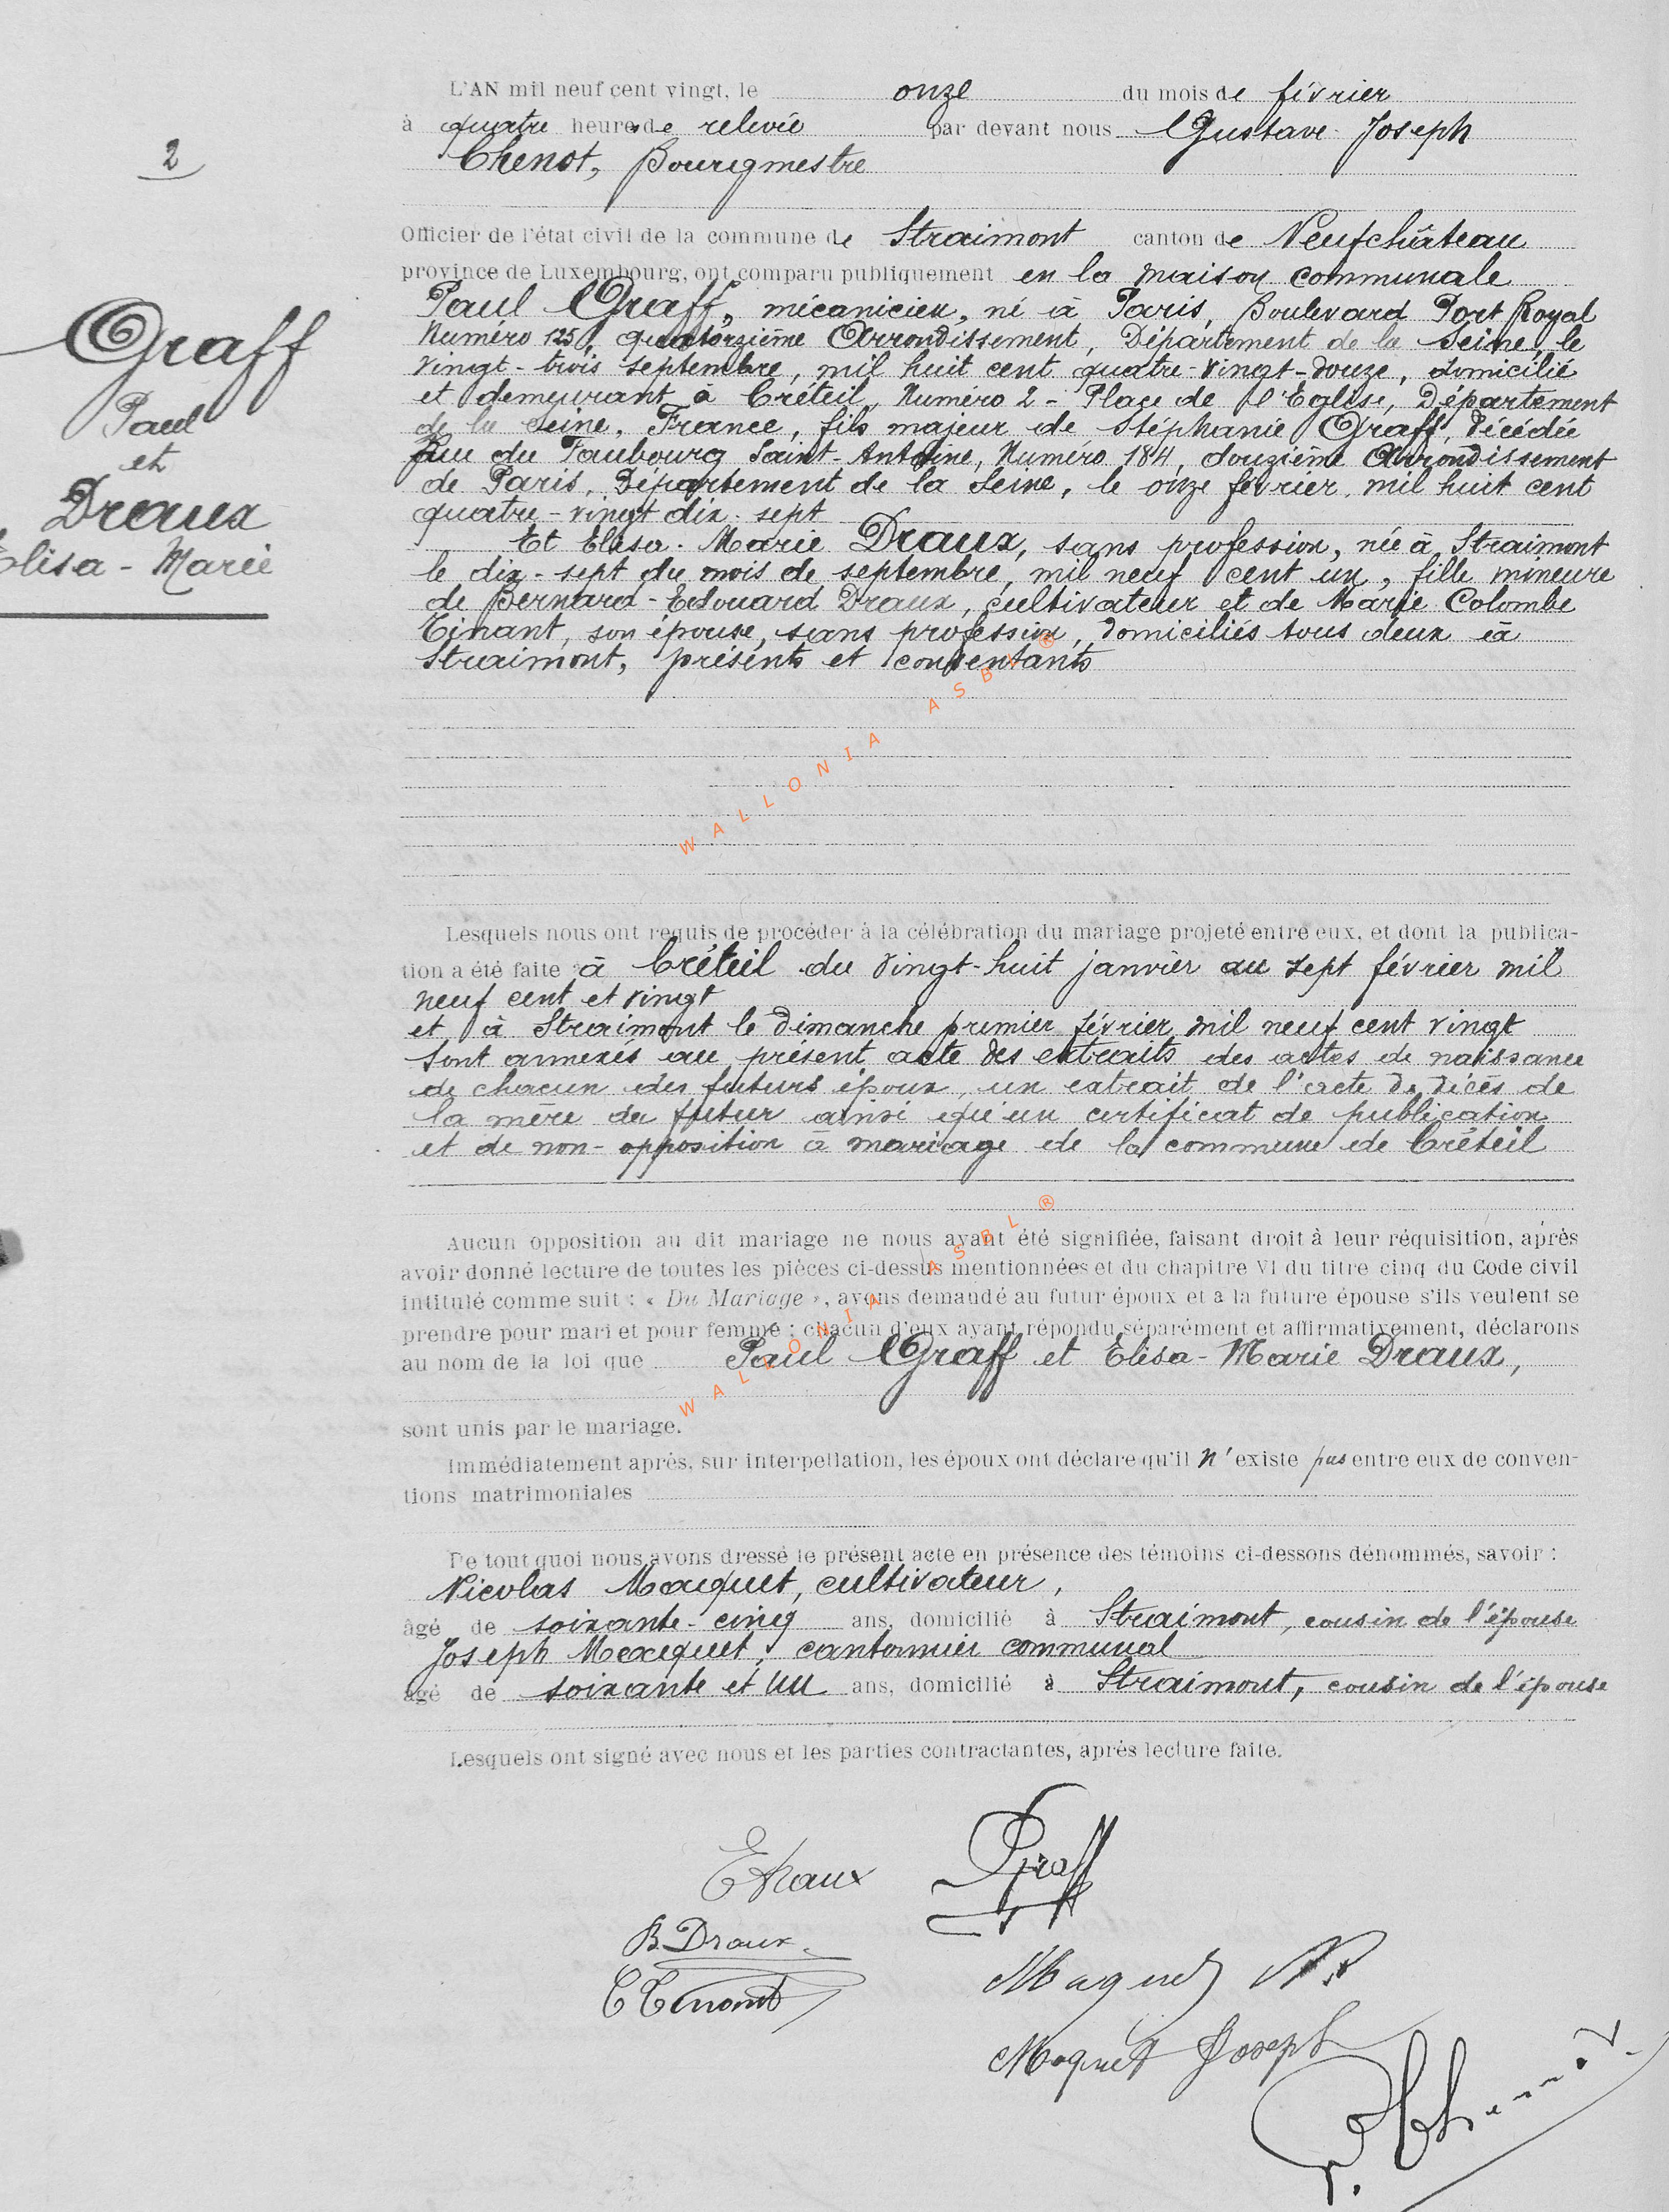 2
Graff
Paul
et
Draux
Elisa - Marie
L'AN mil neuf cent vingt, le onze du mois de février
à quatre heures de relevée par devant nous Gustave Joseph
Chenot, Bourgmestre
Officier de l'état civil de la commune de Straimont canton de Neufchâteau
province de Luxembourg, ont comparu publiquement en la maison communale
Paul Graff, mécanicien, né à Paris, Boulevard Port Royal
Numéro 125, quatorzième Arrondissement, Département de la Seine, le
vingt-trois septembre, mil huit cent quatre-vingt-douze, domicilié
et demeurant à Créteil, Numéro 2 - Place de l'Eglise, Département
de la Seine, France, fils majeur de Stéphanie Graff, décédée
Rue du Faubourg Saint-Antoine, Numéro 184, douzième Arrondissement
de Paris, Département de la Seine, le onze février, mil huit cent
quatre-vingt dix-sept
Et Elisa-Marie Draux, sans profession, née à Straimont
le dix-sept du mois de septembre, mil neuf cent un, fille mineure
de Bernard-Edouard Draux, cultivateur et de Marie Colombe
Tinant, son épouse, sans profession, domiciliés tous deux à
Straimont, présents et consentants
WALLONIA ASBL ®
Lesquels nous ont requis de procéder à la célébration du mariage projeté entre eux, et dont la publica-
tion a été faite à Créteil du vingt-huit janvier au sept février mil
neuf cent et vingt
et à Straimont le dimanche premier février mil neuf cent vingt
Sont annexés au présent acte des extraits des actes de naissance
de chacun des futurs époux, un extrait de l'acte de décès de
la mère du futur ainsi qu'un certificat de publication
et de non-opposition à mariage de la commune de Créteil
Aucun opposition au dit mariage ne nous ayant été signifiée, faisant droit à leur réquisition, après
avoir donné lecture de toutes les pièces ci-dessus mentionnées et du chapitre VI du titre cinq du Code civil
intitulé comme suit : « Du Mariage », avons demandé au futur époux et à la future épouse s'ils veulent se
prendre pour mari et pour femme ; chacun d'eux ayant répondu séparément et affirmativement, déclarons
au nom de la loi que Paul Graff et Elisa-Marie Draux,
WALLONIA ASBL ®
sont unis par le mariage.
Immédiatement après, sur interpellation, les époux ont déclaré qu'il n'existe pas entre eux de conven-
tions matrimoniales
De tout quoi nous avons dressé le présent acte en présence des témoins ci-dessons dénommés, savoir :
Nicolas Maquet, cultivateur,
âgé de soixante-cinq ans, domicilié à Straimont, cousin de l'épouse
Joseph Macquet, cantonnier communal
âgé de soixante et un ans, domicilié à Straimont, cousin de l'épouse
Lesquels ont signé avec nous et les parties contractantes, après lecture faite.
E Draux
PGraff
B. Draux
C Tinant
Maquet N
Maquet Joseph